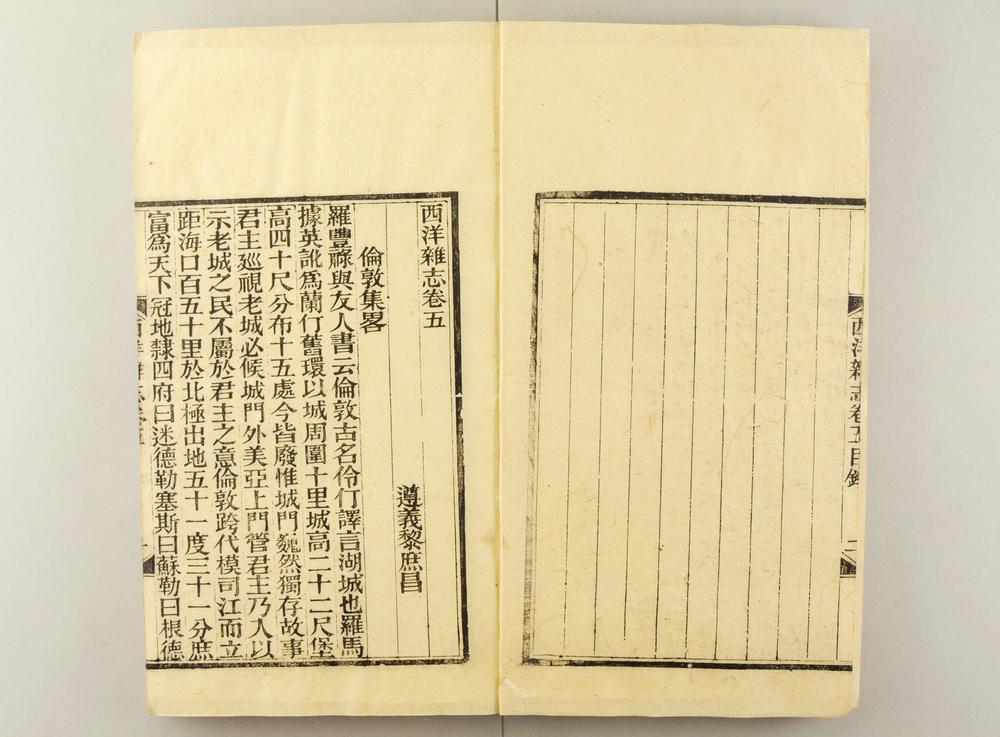 西洋雜志卷五目錄
二
西洋雜志卷五
遵義黎庶昌
倫敦集畧
羅豐祿與友人書云倫敦古名伶仃譯言湖城也羅馬
據英訛爲蘭仃舊環以城周圍十里城高二十二尺堡
高四十尺分布十五處今皆廢惟城門巍然獨存故事
君主廵視老城必候城門外美亞上門管君主乃入以
示老城之民不屬於君主之意倫敦跨代模司江而立
距海口百五十里於北極出地五十一度三十一分庶
富爲天下冠地隸四府曰迷德勒塞斯曰蘇勒曰根德
西洋雜志卷五